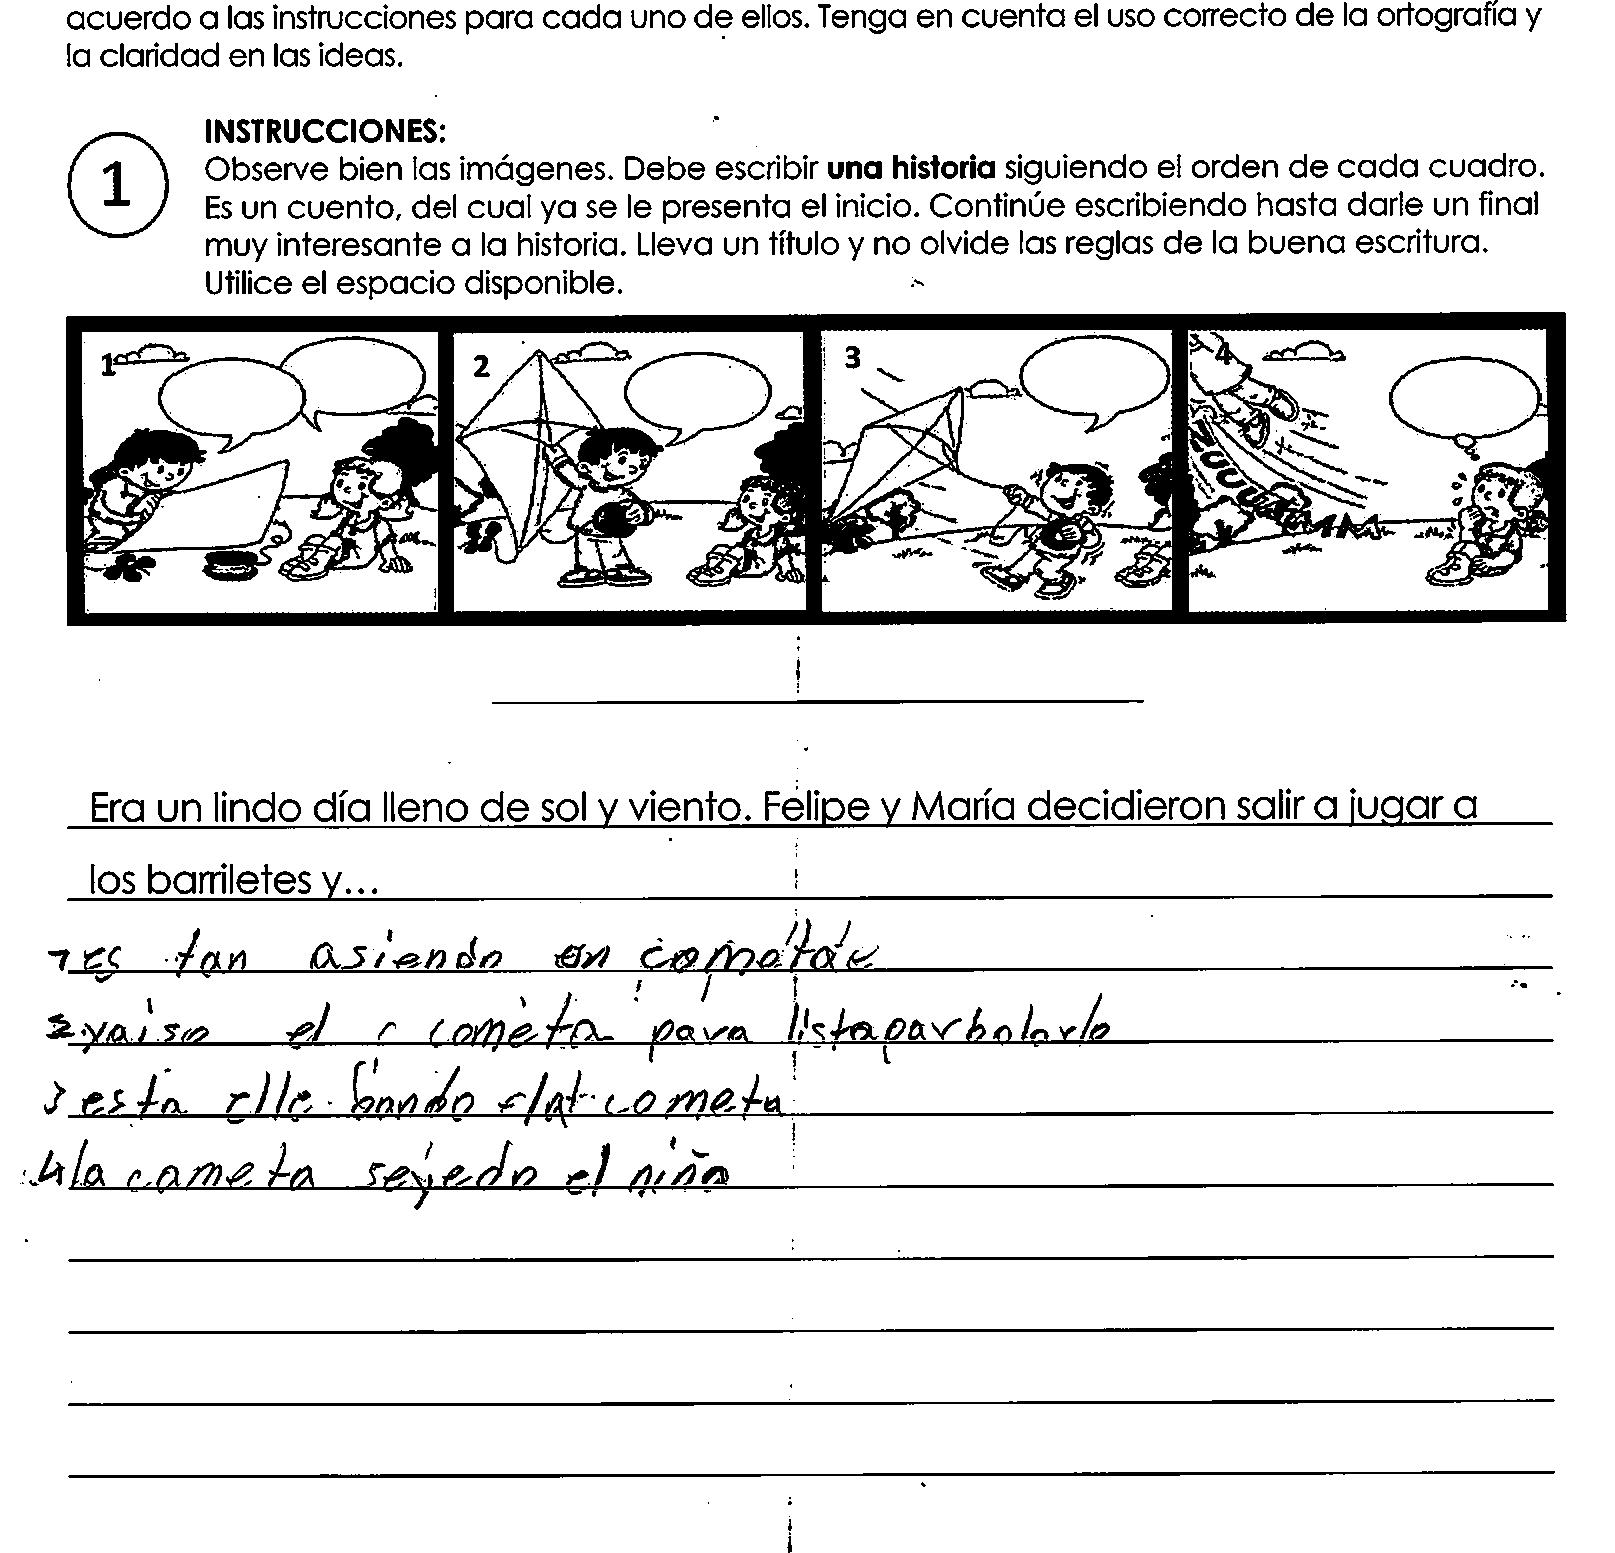 acuerdo a las instrucciones para cada uno de ellos. Tenga en cuenta el uso correcto de la ortografía y
la claridad en las ideas.
1
INSTRUCCIONES:
Observe bien las imágenes. Debe escribir una historia siguiendo el orden de cada cuadro.
Es un cuento, del cual ya se le presenta el inicio. Continúe escribiendo hasta darle un final
muy interesante a la historia. Lleva un título y no olvide las reglas de la buena escritura.
Utilice el espacio disponible.
1 2 3 4
Era un lindo día lleno de sol y viento. Felipe y María decidieron salir a jugar a
los barriletes y...
1 es tan asiendo un
2 yaiso el cometa para listaparbolarlo
3 esta cometa
4 la cameta seyedo el niño